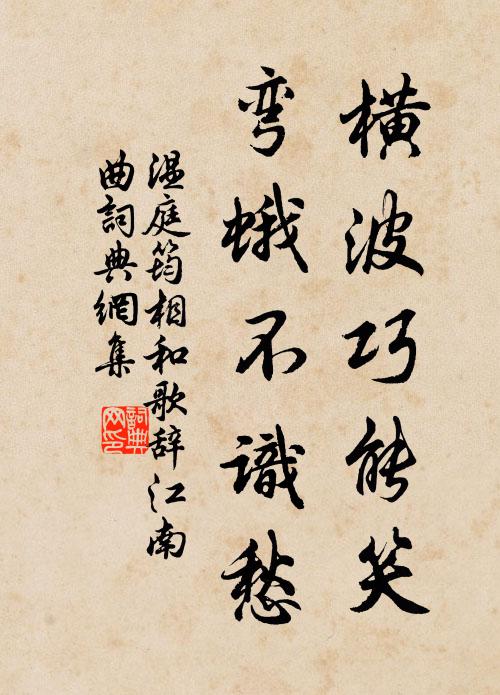 横波巧能笑
弯蛾不識愁
温庭筠相和歌辞江南
曲詞典網集
詞典
网印